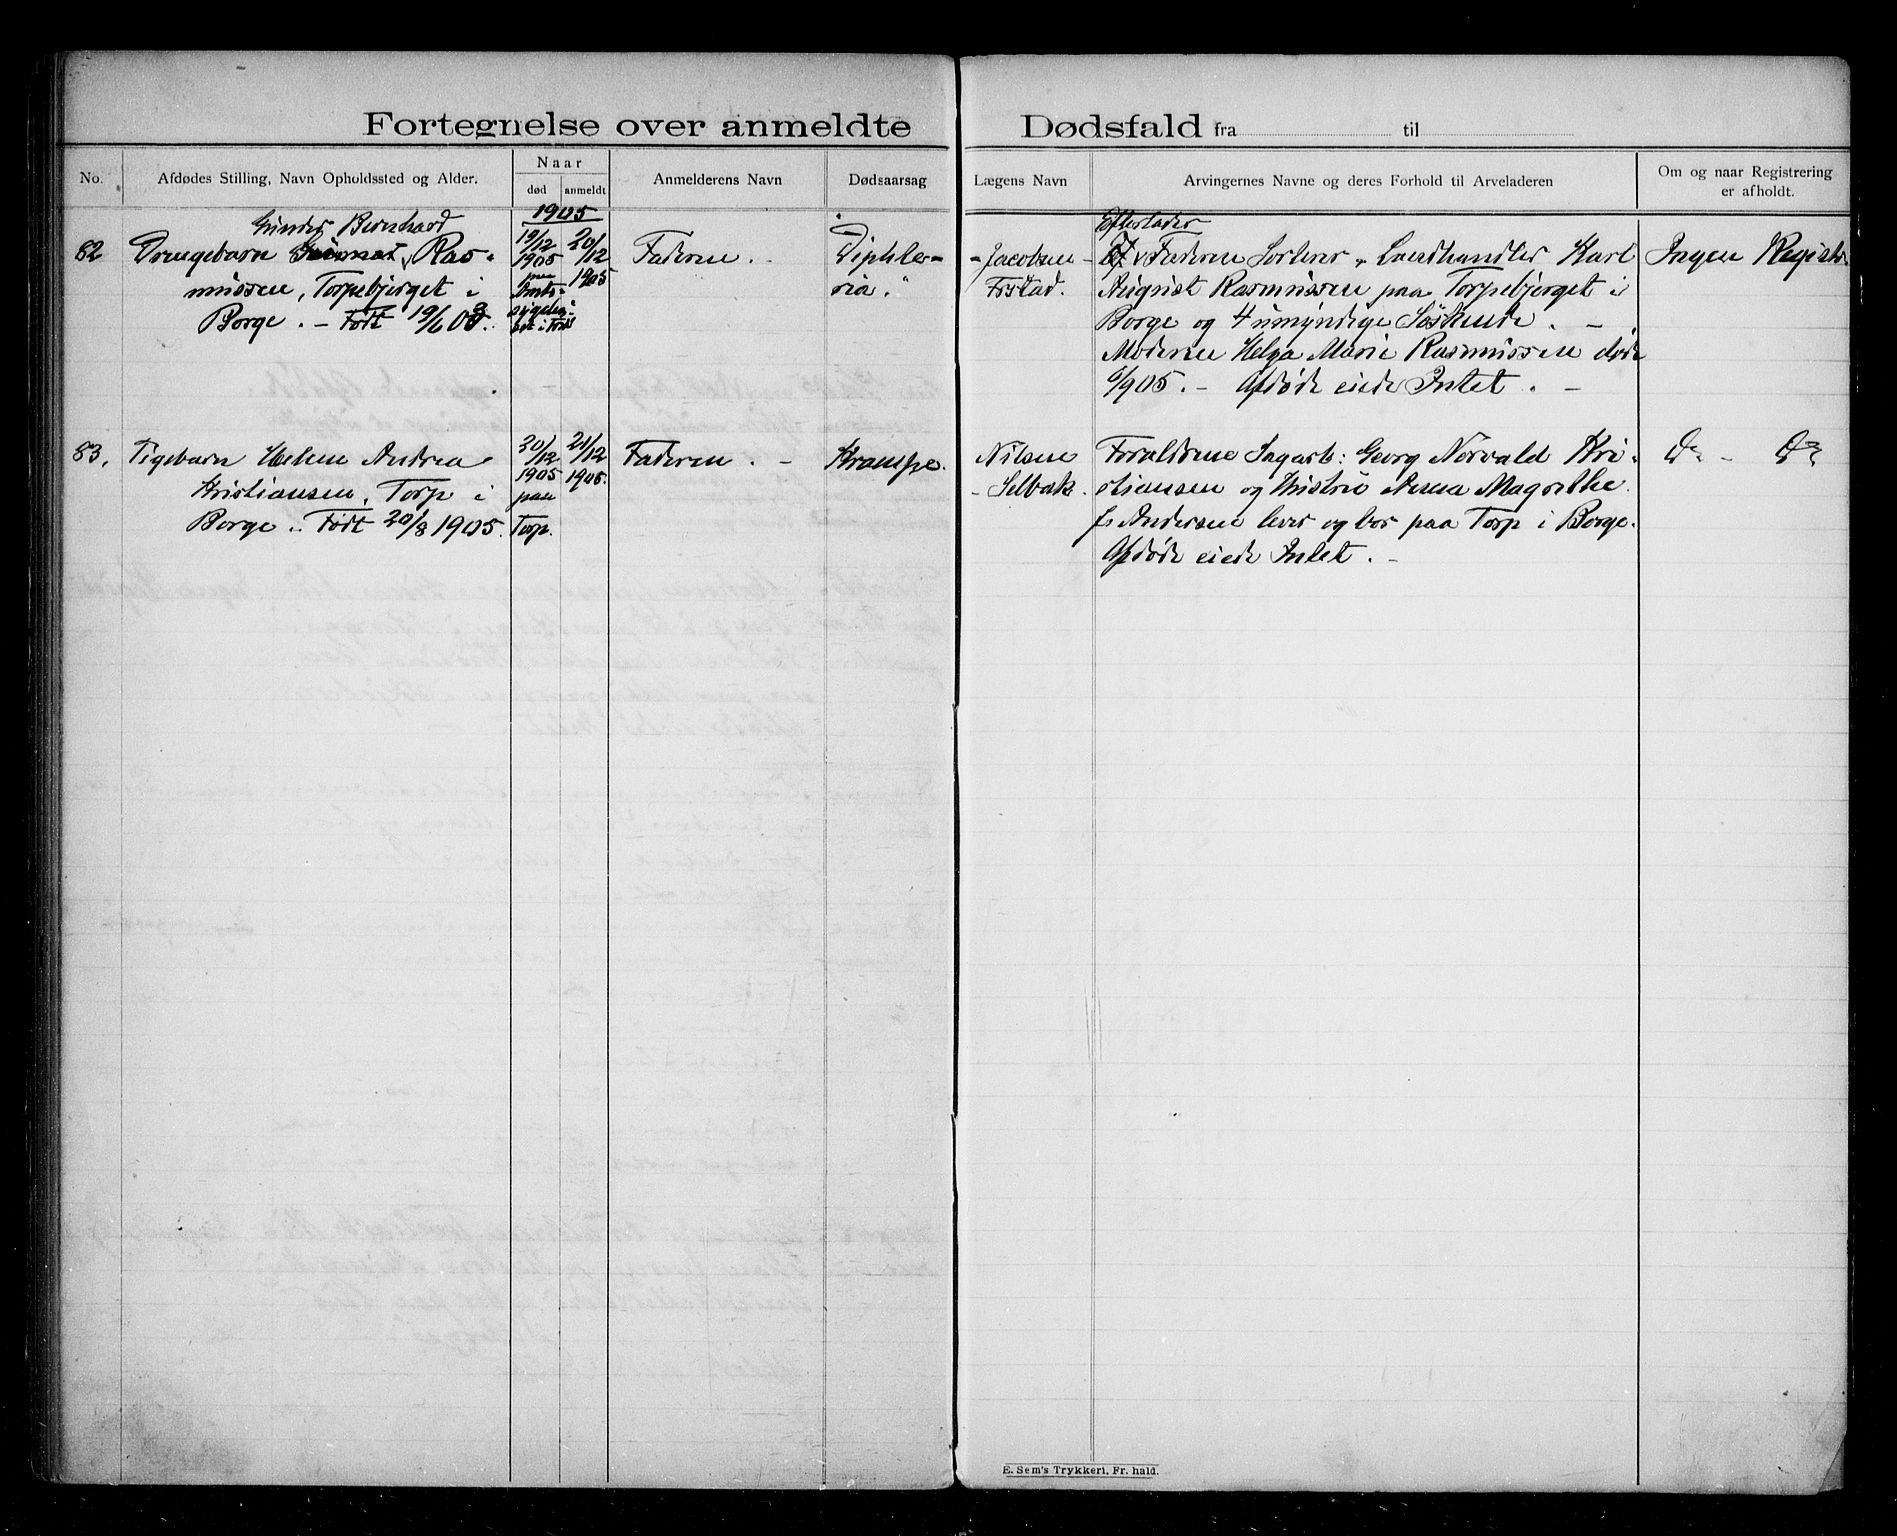 Fortegnelse over anmeldte Dødsfald fra til
No.
Afdødes Stilling, Navn Opholdssted og Alder.
Naar
død
anmeldt
Anmelderens Navn
Dødsaarsag
Lægens Navn
Arvingernes Navne og deres Forhold til Arveladeren
Om og naar Registrering
er afholdt.
1905
82
Gunder Bernhard
Drengebarn Ras-
mussen, Torpebjerget i
Borge. - Født 19/6 03.
19/12
1905
paa
Amts-
sygehu-
set i Frds
20/12
1905
Faderen. -
Diphte-
ria."
- Jacobsen -
Frstad.
Efterlader
Faderen Sorterer, Landhandler Karl
August Rasmussen paa Torpebjerget i
Borge og 4 umyndige Søskende. -
Moderen Helga Marie Rasmussen døde
6/905. - Afdøde eiede Intet. -
Ingen Registr.
83.
Pigebarn Helene Andrea
Kristiansen, Torp i
Borge.. Født 20/8 1905.
20/12
1905
paa
Torp.
21/12
1905.
Faderen. -
Krampe.
Nilsen
- Selbak.
Forældrene Sagarb: Georg Norvald Kri-
stiansen og Hustru Anna Magrethe
f. Andersen lever og bor paa Torp i Borge.
Afdøde eiede Intet. -
Do - Do
E. Sem's Trykkeri, Fr. hald.